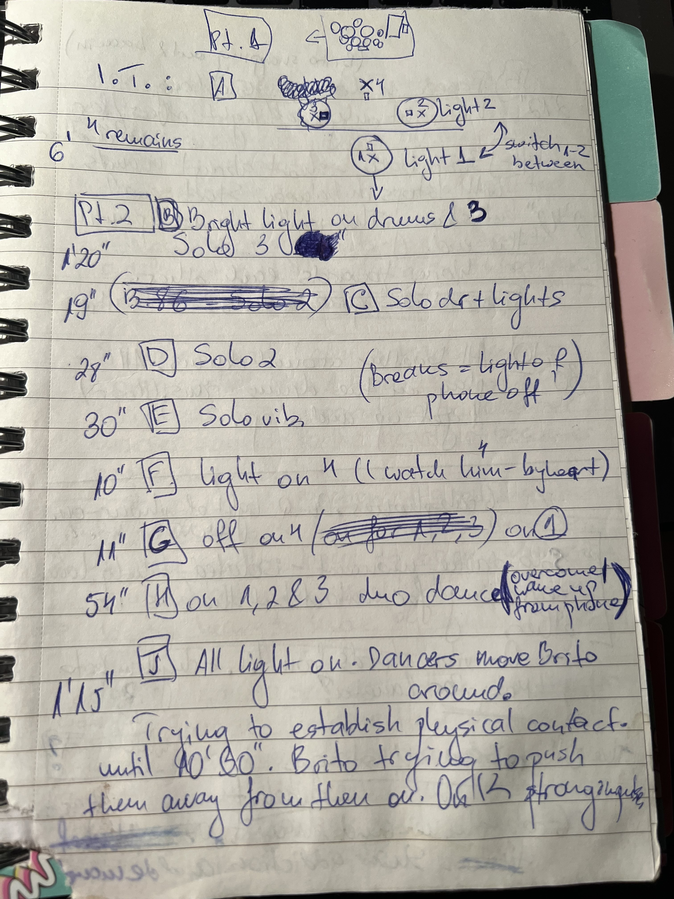 Pt. 1
I.T.: A x4
3 x x 2 light 2
4 remains
6'
1 x light 1 switch 1-2
between
Pt. 2 B Bright light on drums & 3
1'20" Solo 3
19" C Solo dr + lights
28" D Solo 2 (Breaks = light off,
phone off)
30" E Solo vib.
10" F light on 4 (I watch him - by heart)
4
11" G off on 4 on 1
54" H on 1, 2 & 3 duo dance (overcome/
wake up
from phone)
1'15" J All light on. Dancers move Brito
around.
Trying to establish physical contact.
until 10'30". Brito trying to push
them away from then on. On K strong